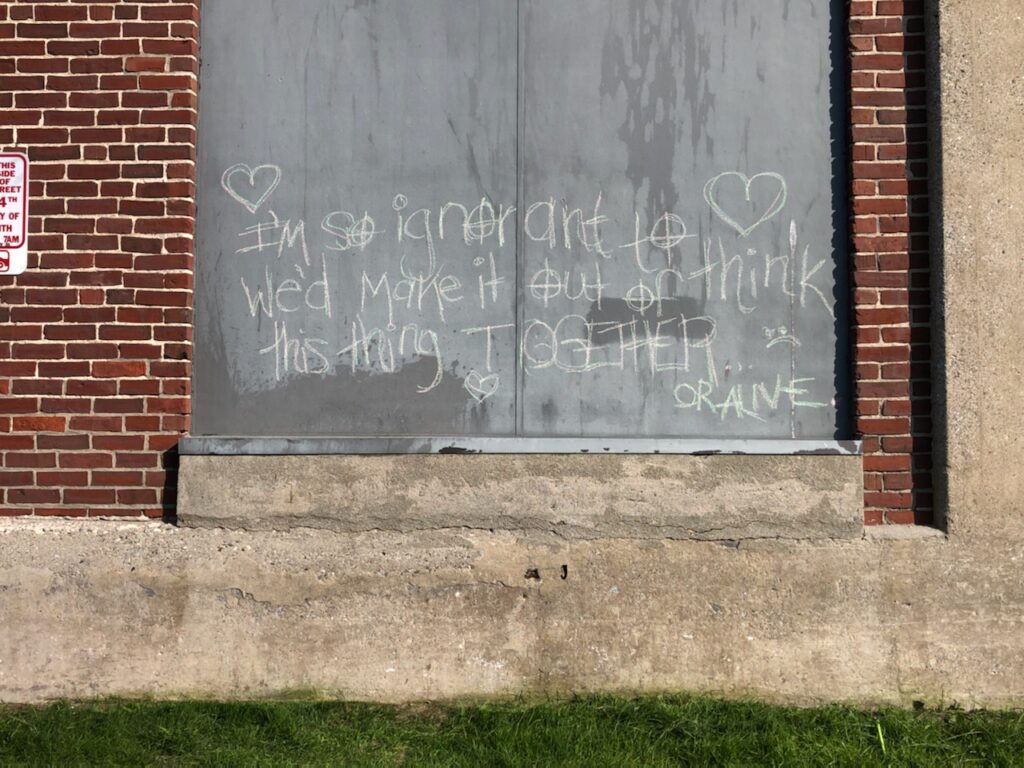 THIS
SIDE
OF
STREET
4TH
DAY OF
MONTH
7AM
I'm so ignorant to think
We'd Make it out of
this thing TOGETHER
OR ALIVE